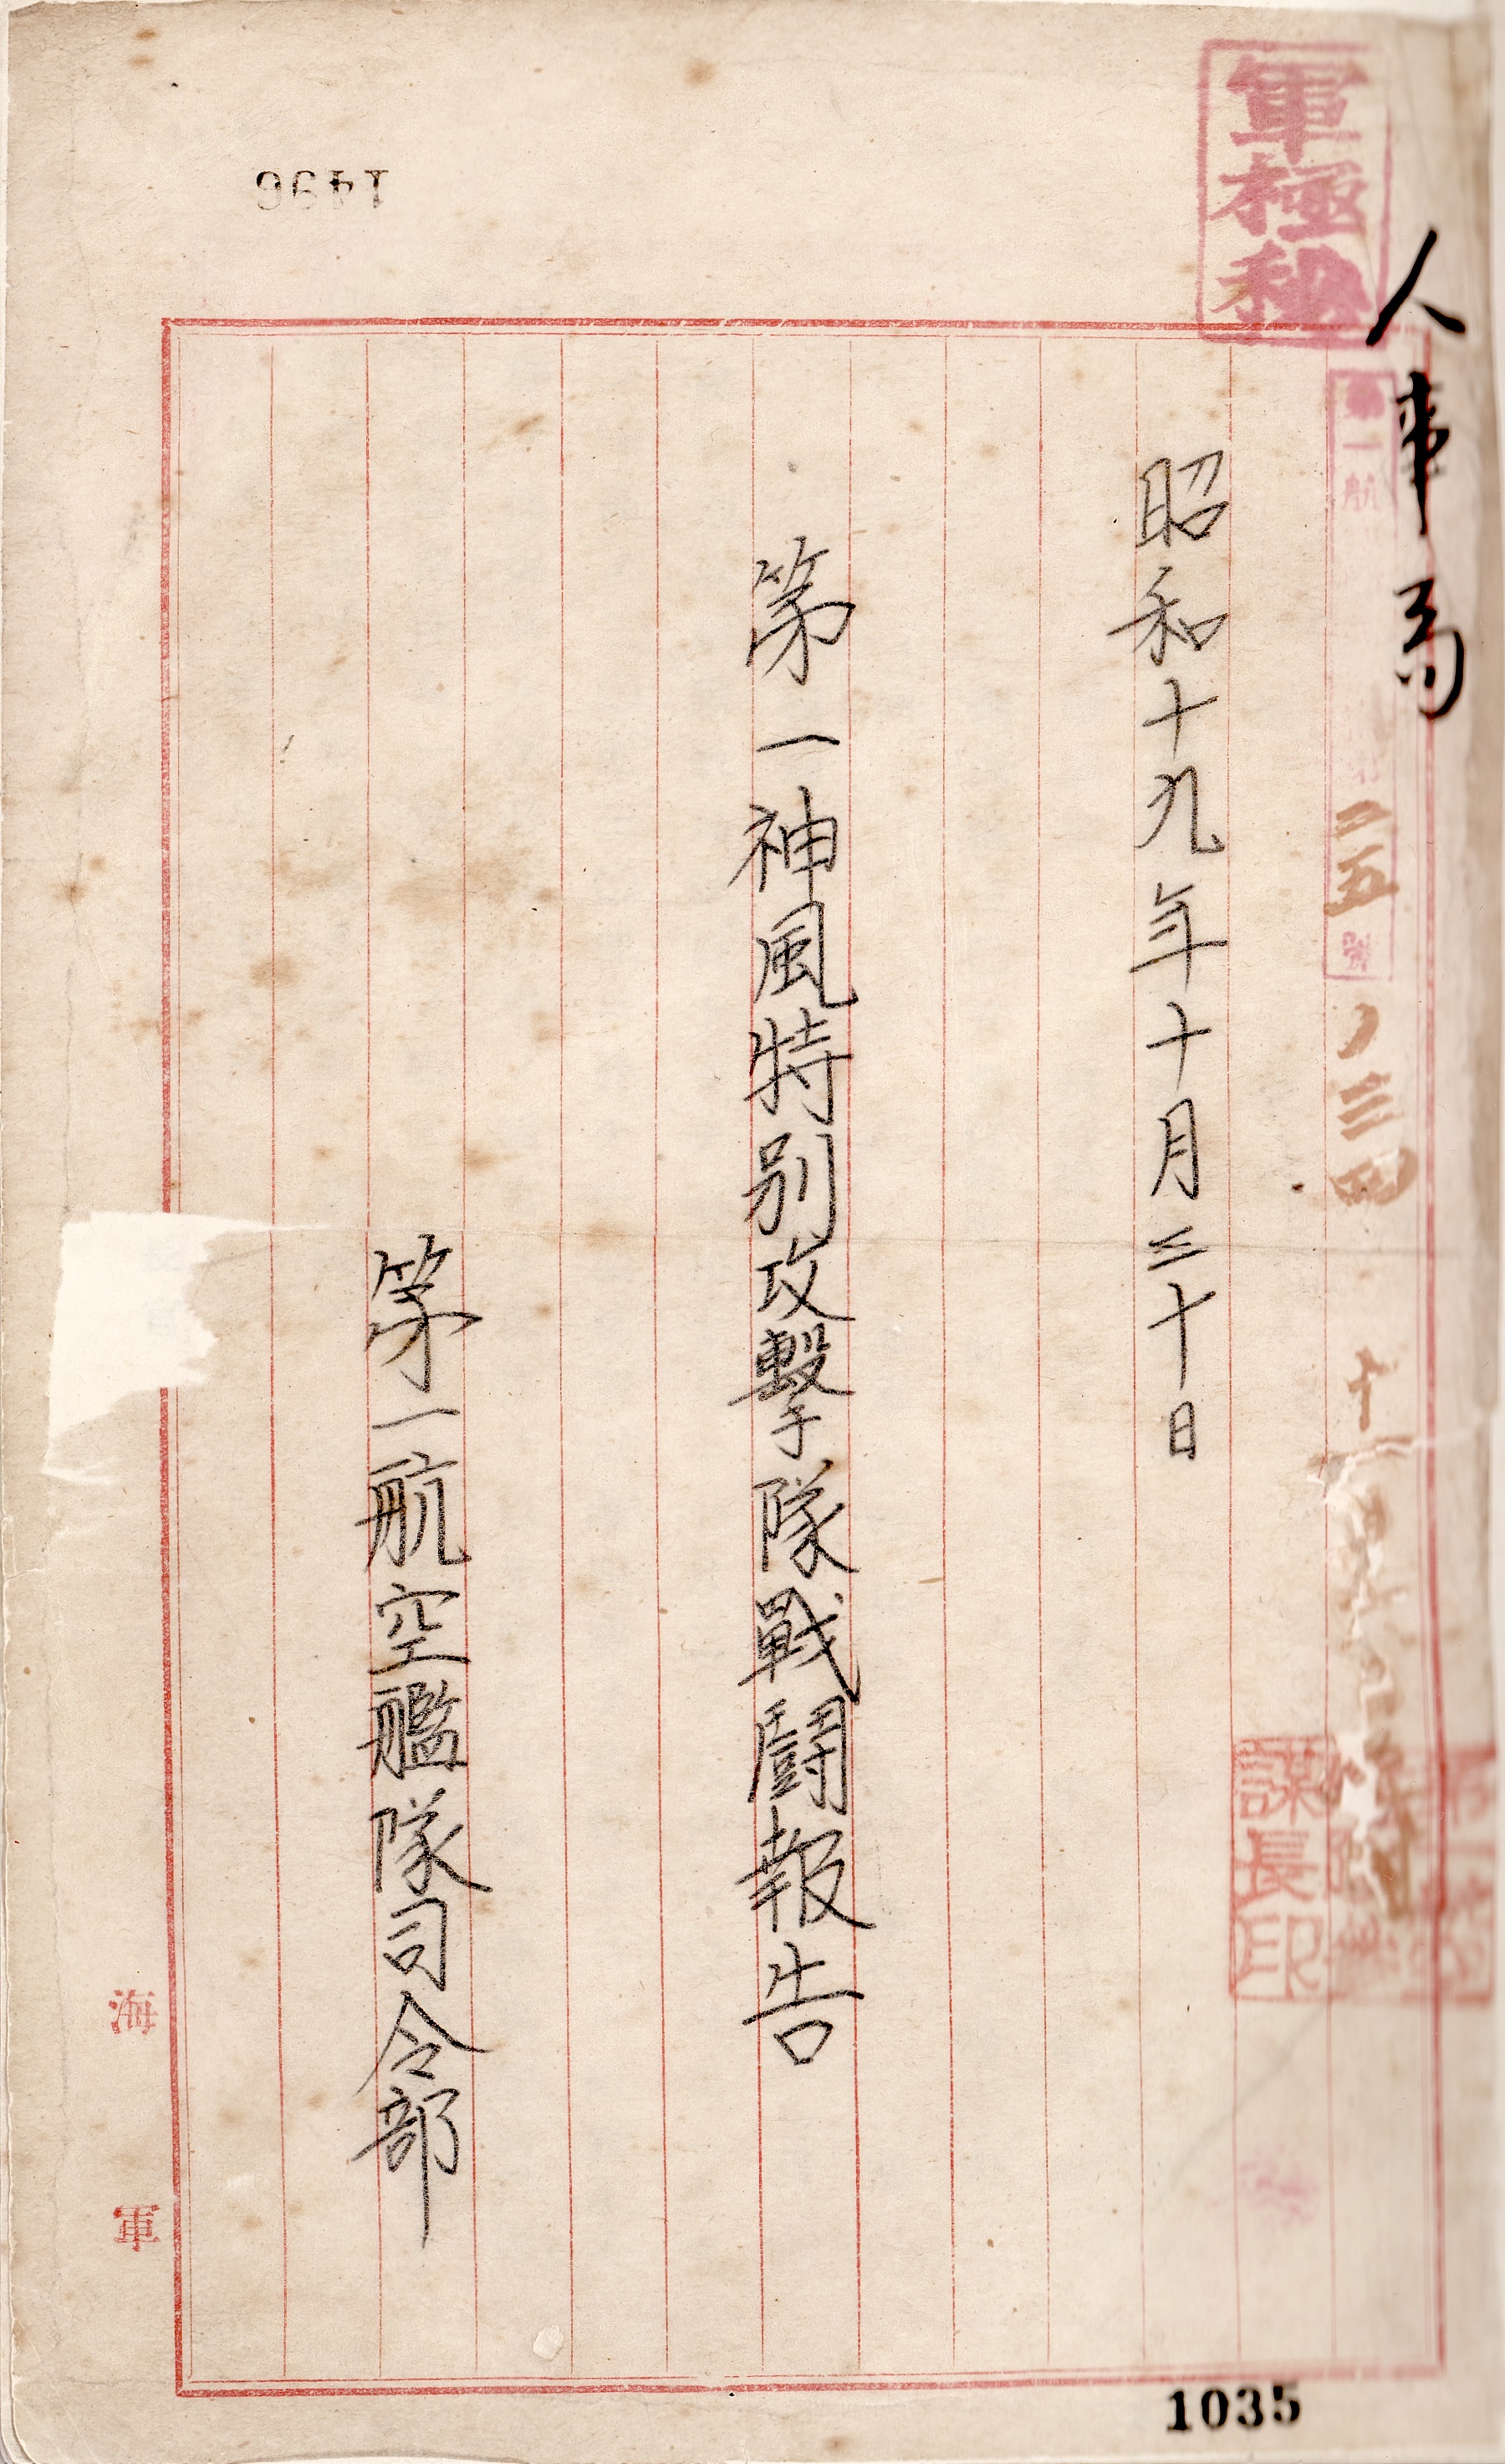 軍極秘
人事局
第一航
二五
號
昭和十九年十月三十日
第一神風特別攻擊隊戰闘報告
第一航空艦隊司令部
謀長印
海軍
1496
1035